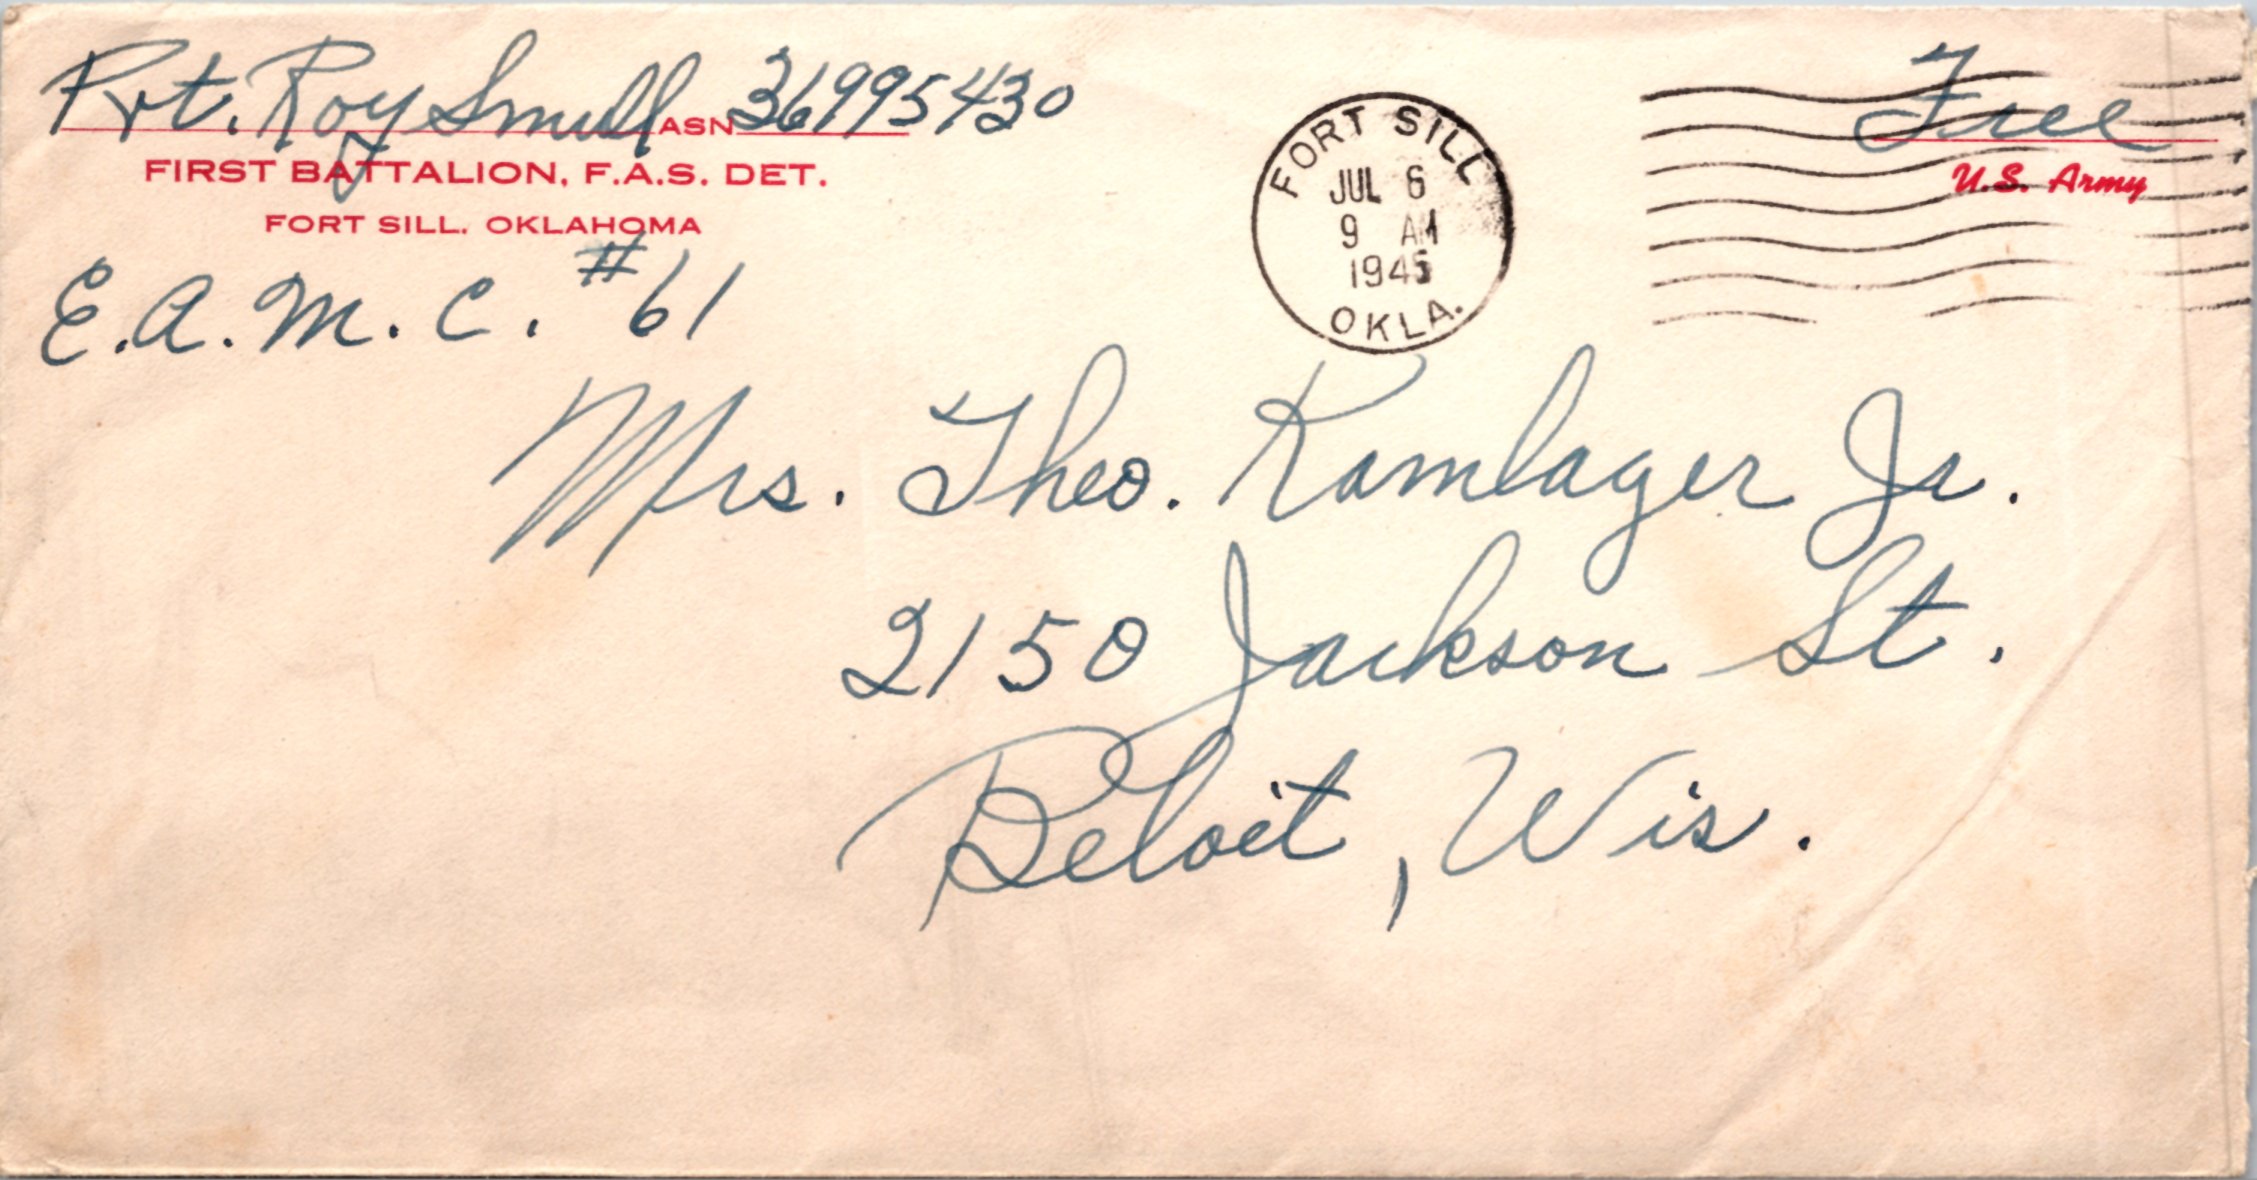 Pvt. Roy ASN 36995430
FIRST BATTALION, F.A.S. DET.
FORT SILL, OKLAHOMA
E.A.M.C. #61
FORT SILL
JUL 6
9 AM
1945
OKLA.
Free
U.S. Army
Mrs. Theo. Ramlager Jr.
2150 Jackson St.
Beloit, Wis.